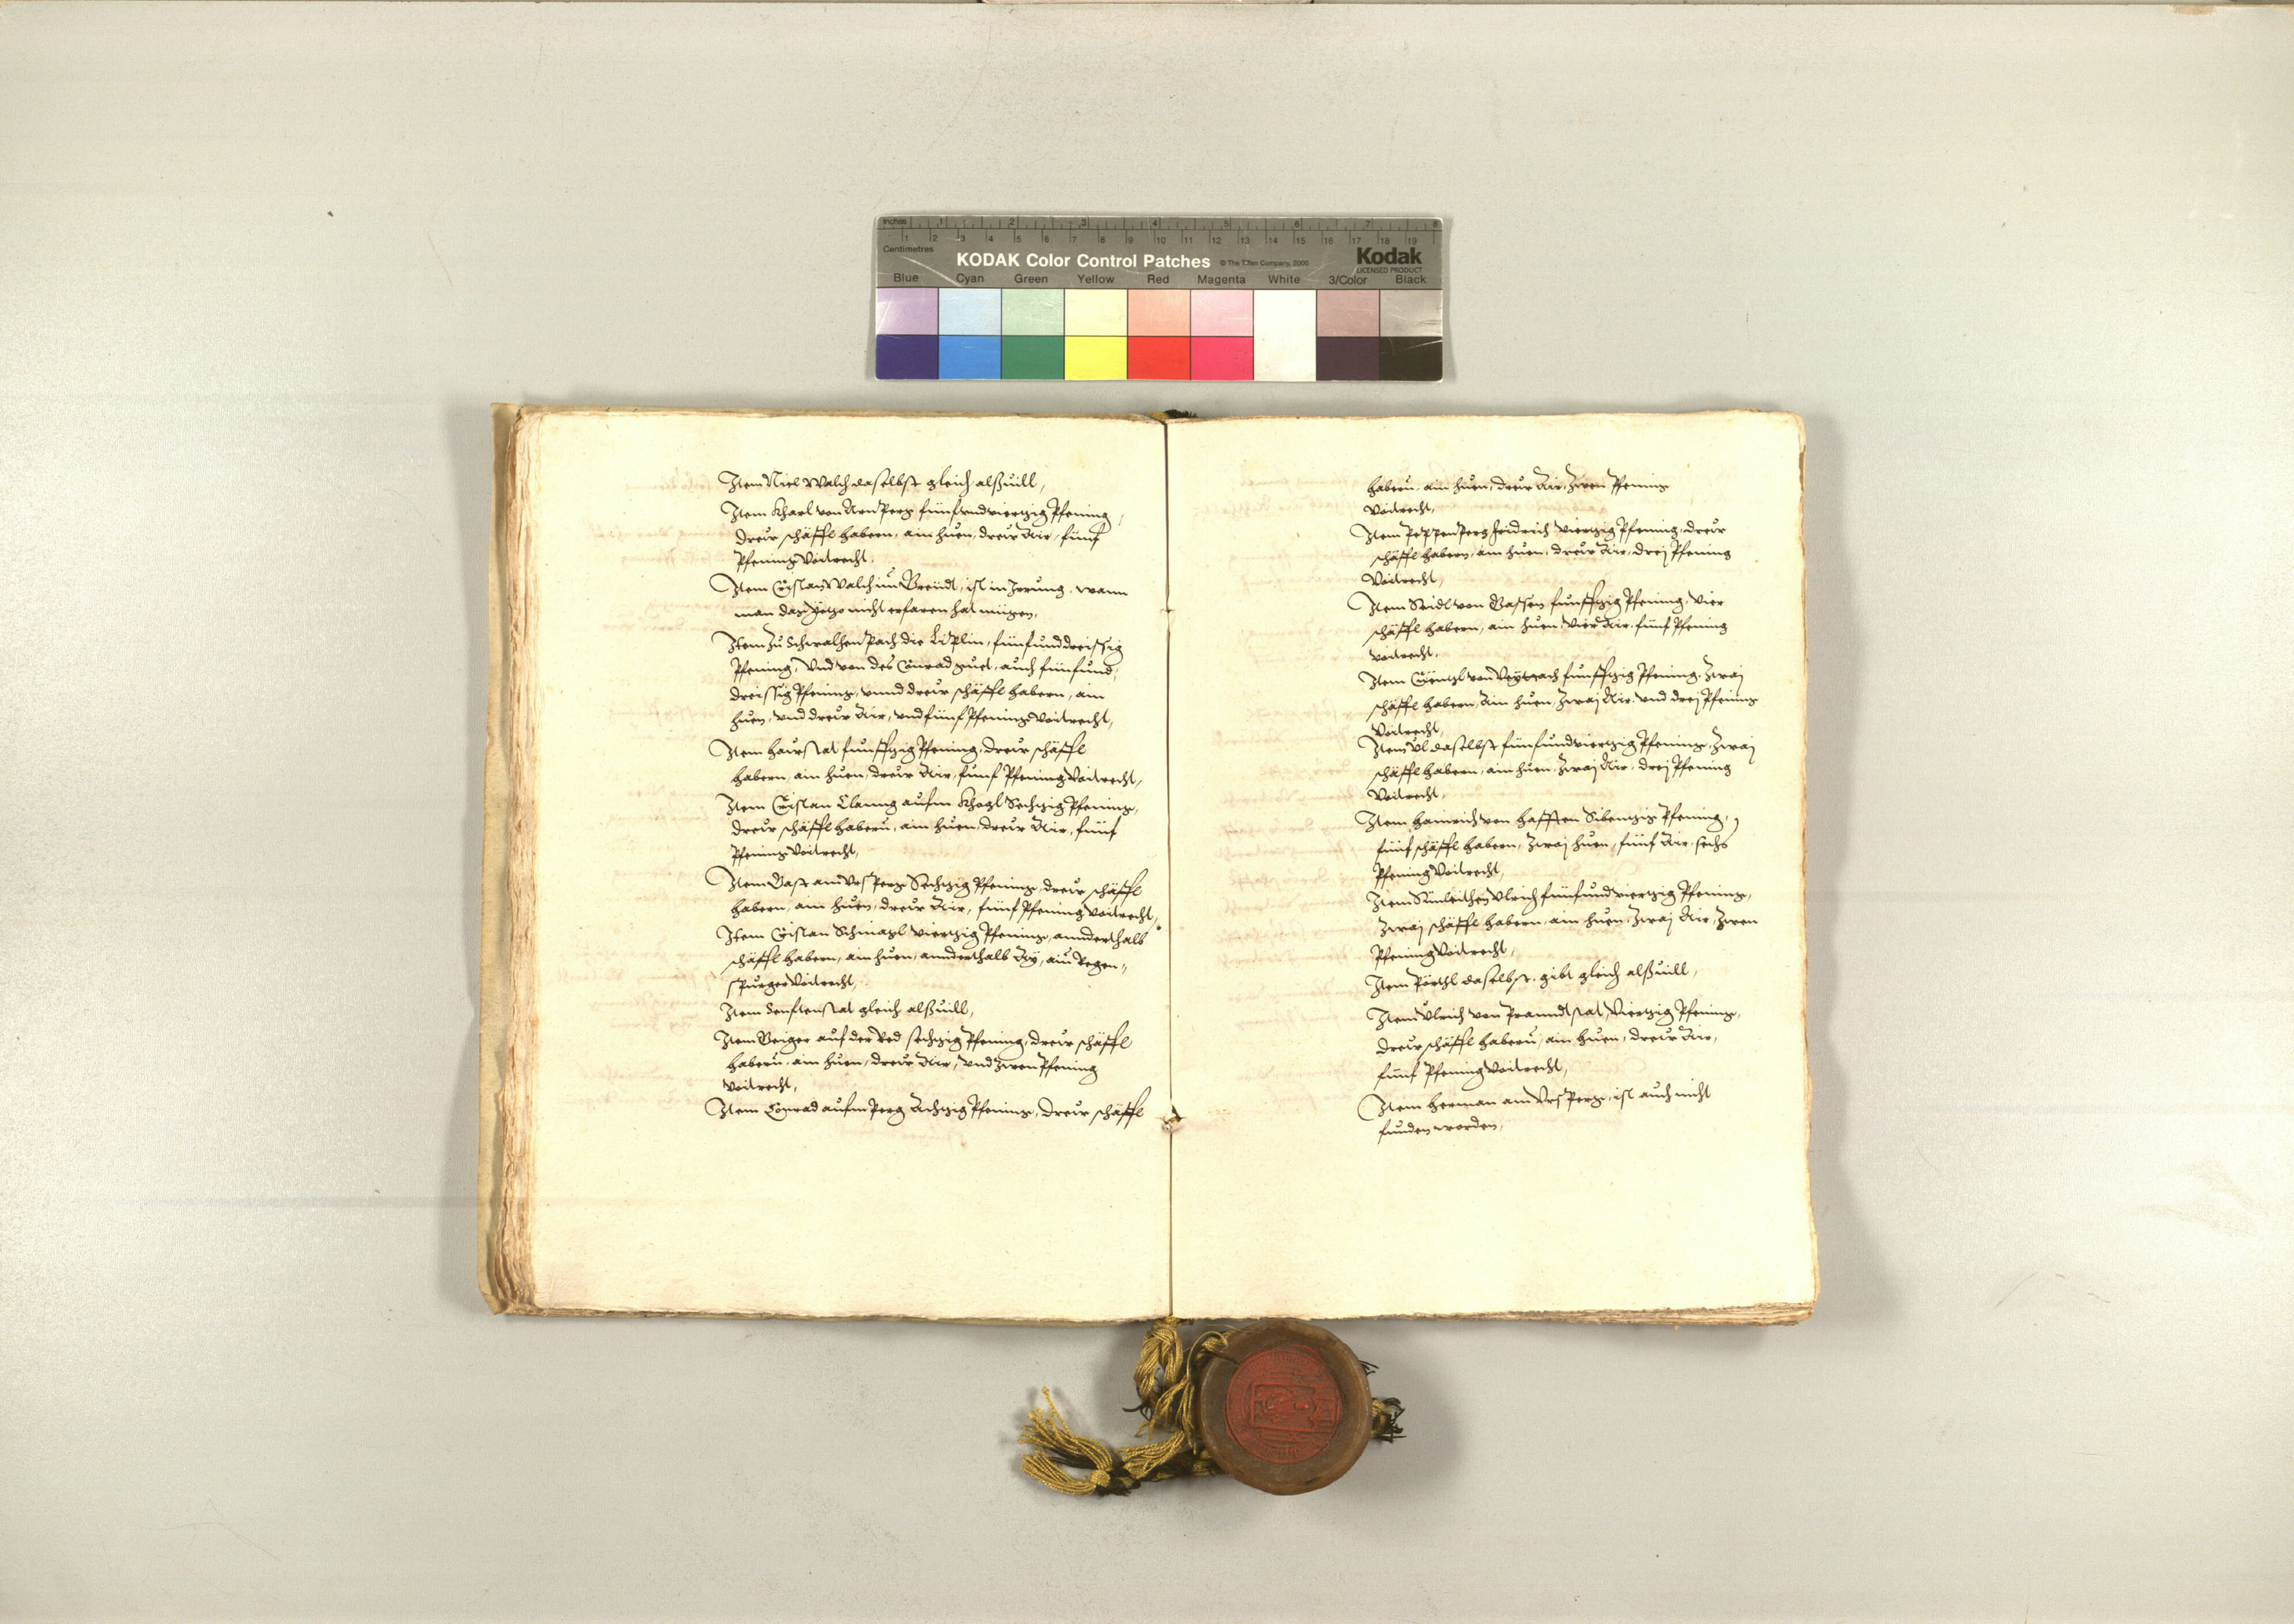 inches 1 2 3 4 5 6 7 8
1 2 3 4 5 6 7 8 9 10 11 12 13 14 15 16 17 18 19
Centimetres
KODAK Color Control Patches © The Tiffen Company, 2000 Kodak
LICENSED PRODUCT
Blue Cyan Green Yellow Red Magenta White 3/Color Black
Item Niel Walch daselbst gleich alßuill,
Item Kharl von Arnperg fünfundvierzig Pfening,
dreur schäffl habern, ain huen, dreur Air, fünf
Pfening Voitrecht,
Item Cristan Walch im Greudt, ist in Irrung, wann
man das yezo nicht erfaren hat mügen,
Item zu Schwalhenpach die Liplin, fünfunddreissig
Pfening, Vnd von des Conrad guet, auch fünfund,
dreissig Pfening, vnnd dreur schäffl habern, ain
huen, vnd dreur Air, vnd fünf Pfening Voitrecht,
Item Haurstat funffzig Pfening, dreur schäffl
habern, ain huen, dreur Air, funf Pfening Voitrecht,
Item Cristan Clanng aufm Khogl Sechzig Pfening,
dreur schäffl habern, ain huen, dreur Air, fünf
Pfening Voitrecht,
Item Gast am Vrsperg Sechzig Pfening, dreur schäffl
habern, ain huen, dreur Air, fünf Pfening Voitrecht,
Item Cristan Schnagl Vierzig Pfening, annderthalb
schäffl habern, ain huen, annderthalb Ay, ain Regen,,
spurger Voitrecht,
Item Senftenstat gleich alßuill,
Item Geiger auf der Ed sechzig Pfening, dreur schäffl
habern, ain huen, dreur Air, vnd zwen Pfening
Voitrecht,
Item Conrad aufm Perg Achzig Pfening, dreur schäffl
habern, ain huen, dreur Air, zwen Pfening
Voitrecht,
Item Peppenperg Fridrich Vierzig Pfening, dreur
schäffl habern, ain huen, dreur Air, drej Pfening
Voitrecht,
Item Seidl von Gassen funffzig Pfening, Vier
schäffl habern, ain huen, Vier Air, fünf Pfening
Voitrecht,
Item Cüentzl von funffzig Pfening, zwaj
schäffl habern, Ain huen, zwaj Air, vnd drej Pfening
Voitrecht,
Item Vl daselbst fünfundvierzig Pfening, zwaj
schäffl habern, ain huen, zwaj Air, drej Pfening
Voitrecht,
Item Hainrich von Hafften Sibenzig Pfening,
fünf schäffl habern, zwaj huen, fünf Air, sechs
Pfening Voitrecht,
Item Vlrich fünfundvierzig Pfening,
zwaj schäffl habern, ain huen, zwaj Air, zwen
Pfening Voitrecht,
Item Pörchl daselbst, gibt gleich alßuill,
Item Vlrich von Pranndtstat, Vierzig Pfening,
dreur schäffl habern, ain huen, dreur Air,
fünf Pfening Voitrecht,
Item Herman am Vrsperg, ist auch nicht
funden worden,